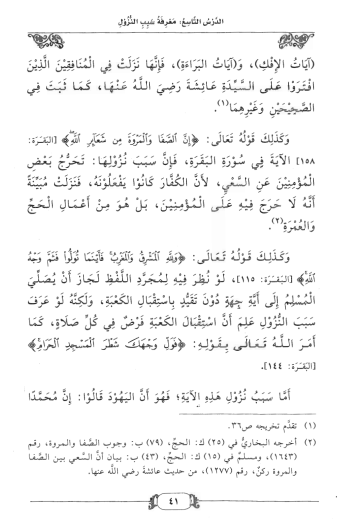 الدَّرْسُ التَّاسِعُ: مَعْرِفَةُ سَبَبِ النُّزُولِ
(آيَاتُ الإِفْكِ)، وَ(آيَاتُ البَرَاءَةِ)، فَإِنَّهَا نَزَلَتْ فِي الْمُنَافِقِينَ الَّذِينَ
افْتَرَوْا عَلَى السَّيِّدَةِ عَائِشَةَ رَضِيَ اللَّهُ عَنْهَا، كَمَا ثَبَتَ فِي
الصَّحِيحَيْنِ وَغَيْرِهِمَا(١).
وَكَذَلِكَ قَوْلُهُ تَعَالَى: ﴿إِنَّ الصَّفَا وَالْمَرْوَةَ مِن شَعَآئِرِ اللَّهِ﴾ [البَقَرَة:
١٥٨] الآيَةَ فِي سُورَةِ البَقَرَةِ، فَإِنَّ سَبَبَ نُزُولِهَا: تَحَرُّجُ بَعْضِ
الْمُؤْمِنِينَ عَنِ السَّعْيِ، لأَنَّ الكُفَّارَ كَانُوا يَفْعَلُونَهُ، فَنَزَلَتْ مُبَيِّنَةً
أَنَّهُ لَا حَرَجَ فِيهِ عَلَى الْمُؤْمِنِينَ، بَلْ هُوَ مِنْ أَعْمَالِ الْحَجِّ
وَالعُمْرَةِ(٢).
وَكَذَلِكَ قَوْلُهُ تَعَالَى: ﴿وَلِلَّهِ الْمَشْرِقُ وَالْمَغْرِبُ فَأَيْنَمَا تُوَلُّوا فَثَمَّ وَجْهُ
اللَّهِ﴾ [البَقَرَة: ١١٥]، لَوْ نُظِرَ فِيهِ لِمُجَرَّدِ اللَّفْظِ لَجَازَ أَنْ يُصَلِّيَ
الْمُسْلِمُ إِلَى أَيَّةِ جِهَةٍ دُوْنَ تَقَيُّدٍ بِاسْتِقْبَالِ الكَعْبَةِ، وَلَكِنَّهُ لَوْ عَرَفَ
سَبَبَ النُّزُولِ عَلِمَ أَنَّ اسْتِقْبَالَ الكَعْبَةِ فَرْضٌ فِي كُلِّ صَلَاةٍ، كَمَا
أَمَرَ اللَّهُ تَعَالَى بِقَوْلِهِ: ﴿فَوَلِّ وَجْهَكَ شَطْرَ الْمَسْجِدِ الْحَرَامِ﴾
[البَقَرَة: ١٤٤].
أَمَّا سَبَبُ نُزُولِ هَذِهِ الآيَةِ؛ فَهُوَ أَنَّ اليَهُودَ قَالُوا: إِنَّ مُحَمَّدًا
(١) تقدَّم تخريجه ص٣٦.
(٢) أخرجه البخاريُّ في (٢٥) ك: الحجِّ، (٧٩) ب: وجوب الصَّفا والمروة، رقم
(١٦٤٣)، ومسلم في (١٥) ك: الحجِّ، (٤٣) ب: بيان أنَّ السعي بين الصَّفا
والمروة ركنٌ، رقم (١٢٧٧)، من حديث عائشة رضي اللَّه عنها.
٤١